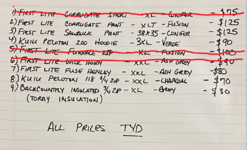 1) FIRST LITE CORRUGATE SHORT - XL - CONIFER - $125
2) FIRST LITE CORRUGATE PANT - XLT - FUSION - $125
3) FIRST LITE SAWBUCK PANT - 38x35 - CONIFER - $125
4) KUIU PELOTON 200 HOODIE - 3XL - VERDE - $90
5) FIRST LITE FURNACE - XL - FUSION - $100
6) FIRST LITE WICK HOODY - XXL - ASH GREY - $90
7) FIRST LITE FUSE HENLEY - XXL - ASH GREY - $80
8) KUIU PELOTON 118 3/4 ZIP - XXL - CHARCOAL - $70
9) BACKCOUNTRY INSULATED 3/4 ZIP - XL - GREY - $30
(TORAY INSULATION)
ALL PRICES TYD